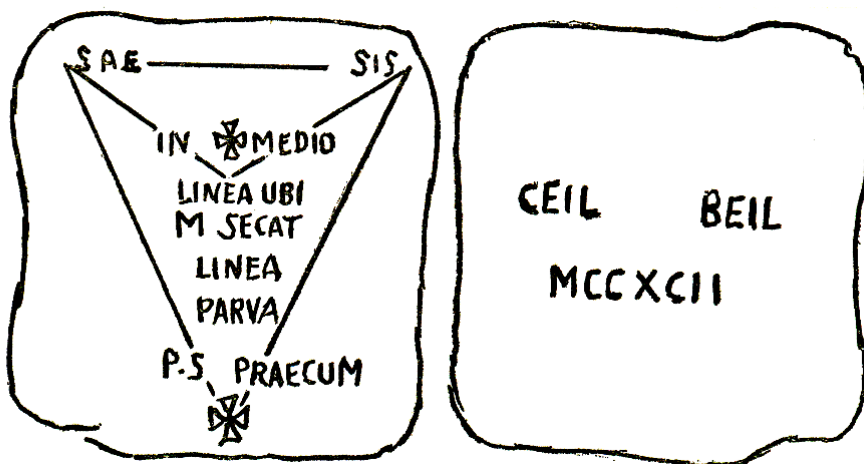 SAE SIS
IN MEDIO
LINEA UBI
M SECAT
LINEA
PARVA
P.S PRAECUM
CEIL BEIL
MCCXCII